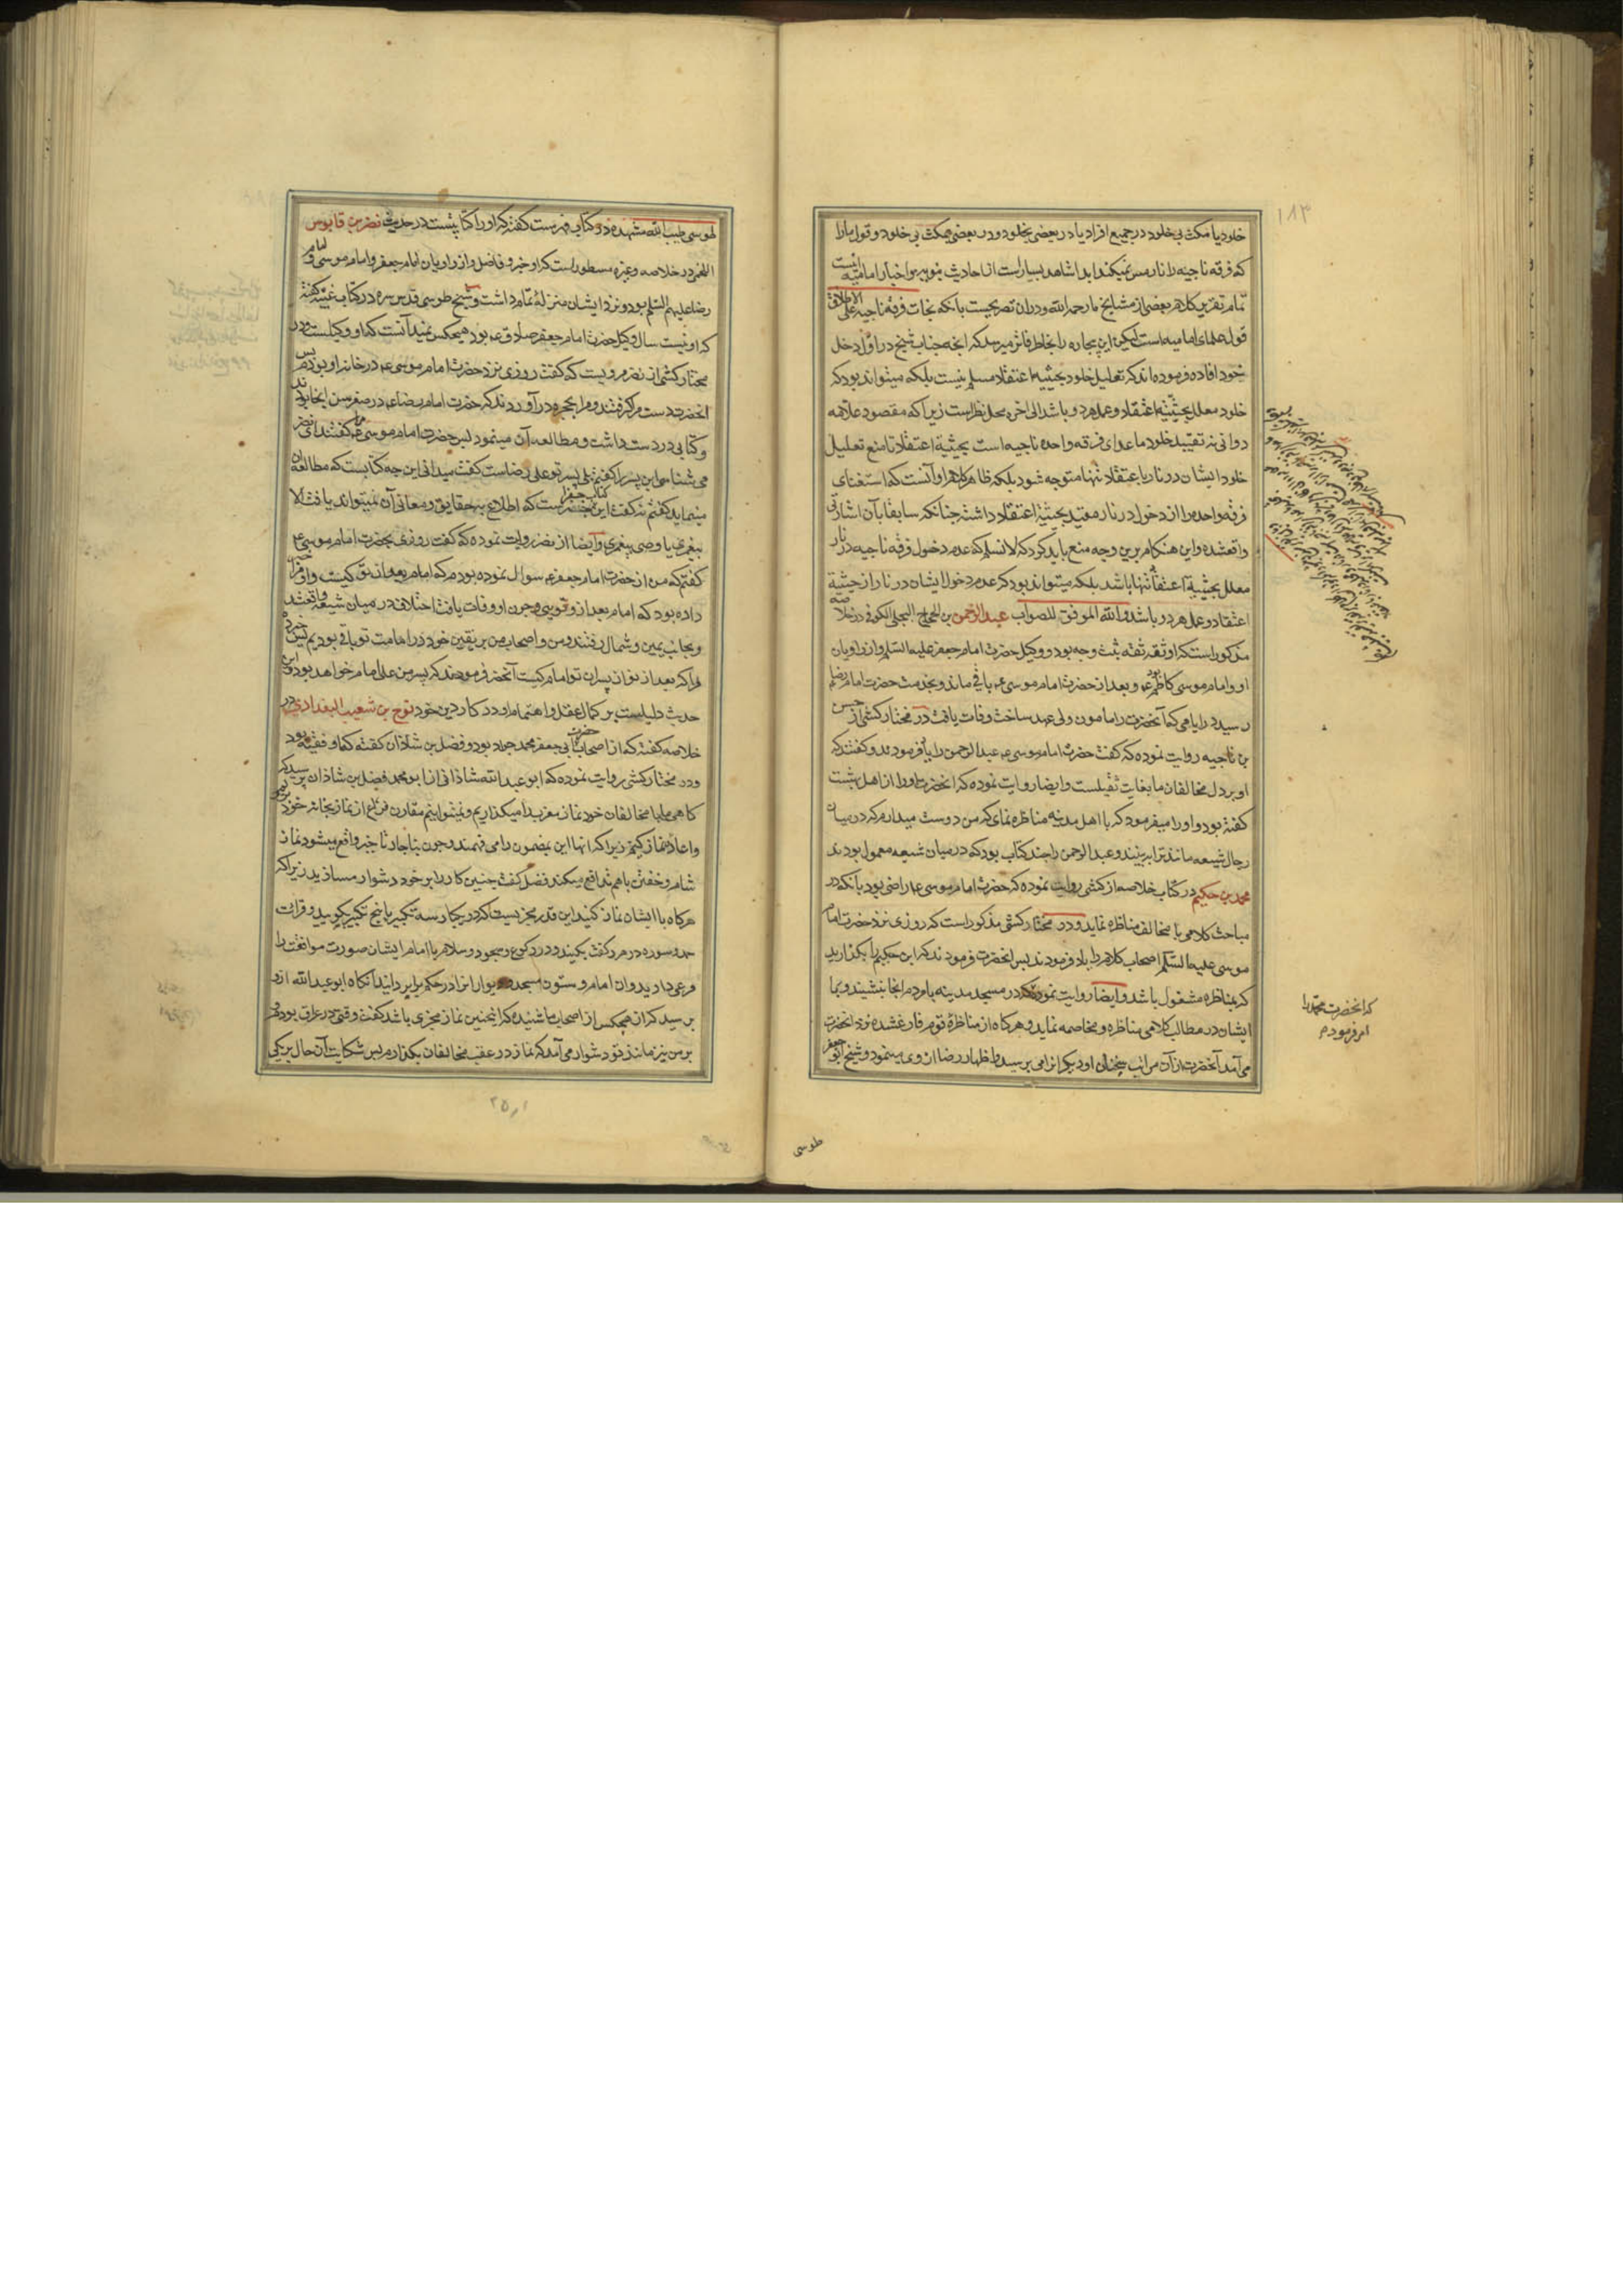 ١٨٣
خلود یا مکث بی خلود در جمیع افراد یا در بعضی بخلود و در بعضی بمکث بی خلود و قول ما را
که فرقه ناجیه را نار مس نمیکند ابدا شاهد بسیار است از احادیث نبویه و اخبار امامیه اینست
تمام تقریر کلام بعضی از مشایخ ما رحمه الله و در ان تصریحست بانکه نجات فرقه ناجیه علی الاطلاق
قول علمای امامیه است لیکن این بیچاره را بخاطر فاتر میرسد که انچه جناب شیخ در اول دخل
خود افاده فرموده اند که تعلیل خلود بحیثیه اعتقاد مسلم نیست بلکه میتواند بود که
خلود معلل بحیثیه اعتقاد و عمل هر دو باشد الی اخره محل نظر است زیرا که مقصود علامه
دوانی نه تقیید خلود ماعدای فرقه واحده ناجیه است بحیثیة اعتقاد تا منع تعلیل
خلود ایشان در نار با عتقاد تنها متوجه شود بلکه ظاهر کلام او آنست که استثنای
فرقه واحده را از دخول در نار مقید بحیثیة اعتقاد داشته چنانکه سابقا بآن اشارتی
واقعشده و این هنکام برین وجه منع باید کرد که لا نسلم که عدم دخول فرقه ناجیه در نار
معلل بحیثیة اعتقاد تنها باشد بلکه میتواند بود که عدم دخول ایشان در نار از حیثیة
اعتقاد و عمل هر دو باشد و الله الموفق للصواب عبد الرحمن بن الحجاج البجلی الکوفی در خلاصه
مذکور است که او ثقه ثقه ثبت وجه بود و وکیل حضرت امام جعفر علیه السلم و از راویان
او و امام موسی کاظم ع بود و بعد از حضرت امام موسی ع باقی ماند و بخدمت حضرت امام رضا
رسید در ایامی که آنحضرت را مامون ولی عهد ساخت وفات یافت در مختار کشی از حسن
بن ناجیه روایت نموده که گفت حضرت امام موسی ع عبد الرحمن را یاد فرمودند و کفتند که
او بر دل مخالفان ما بغایت ثقیلست و ایضا روایت نموده که انحضرت او را از اهل بهشت
کفته بود و او را میفرمود که با اهل مدینه مناظره نمای که من دوست میدارم که در میان
رجال شیعه مانند ترا ببینند و عبد الرحمن را چند کتاب بود که در میان شیعه معمول بودند
محمد بن حکیم در کتاب خلاصه از کشی روایت نموده که حضرت امام موسی ع راضی بود بانکه در
مباحث کلامی با مخالف مناظره نماید و در مختار کشی مذکور است که روزی نزد حضرت امام
موسی علیه السلم اصحاب کلام را یاد فرمودند پس انحضرت فرمودند که ابن حکیم را بکذارید
که بمناظره مشغول باشد و ایضا روایت نموده که در مسجد مدینه با مردم انجا بنشیند و با
ایشان در مطالب کلامی مناظره و مخاصمه نماید و هر کاه از مناظره قوم فارغ شده نزد انحضرت
می آمد آنحضرت از آن مراتب و سخنان او و دیکران می پرسید و اظهار رضا از وی مینمود و شیخ ابو جعفر
که انحضرت محمد را
امر فرمودم
طوسی
طوسی طیب الله مشهده در کتاب فهرست کفته که او را کتابیست در حدیث نضر بن قابوس
اللخمی در خلاصه و غیره مسطور است که او خیر و فاضل و از راویان امام جعفر و امام موسی و امام
رضا علیهم السلم بود و نزد ایشان منزله تمام داشت و شیخ طوسی قدس سره در کتاب غیبه کفته
که او بیست سال وکیل حضرت امام جعفر صادق ع بود و هیچکس نمیدانست که او وکیلست و در
مختار کشی از نضر مرویست که گفت روزی نزد حضرت امام موسی ع در خانه او بودم پس
انحضرت دست مرا کرفتند و مرا بحجره در آوردند که حضرت امام رضا ع در صغر سن انجا بودند
و کتابی در دست داشت و مطالعه آن مینمود پس حضرت امام موسی ع مرا کفتند ای نضر
می شناسی این پسر را کفتم بلی پسر تو علی رضاست کفت میدانی این چه کتابست که مطالعه آن
مینماید کفتم نه کفت این کتاب جفر است که اطلاع به حقایق و معانی آن نمیتواند یافت الا
پیغمبری یا وصی پیغمبری و ایضا از نضر روایت نموده که کفت روزی بحضرت امام موسی ع
کفتم که من از حضرت امام جعفر ع سوال نموده بودم که امام بعد از تو کیست و او مرا خبر
داده بود که امام بعد از و تویی و چون او وفات یافت اختلاف در میان شیعه واقعشد
و بجانب یمین و شمال رفتند و من و اصحاب من بر یقین خود در امامت تو باقی بودیم پس خبر ده
مرا که بعد از تو از پسران تو امام کیست آنحضرت فرمودند که پسر من علی امام خواهد بود و این
حدیث دلیلست بر کمال عقل و اهتمام او در کار دین خود نوح بن شعیب البغدادی در
خلاصه کفته که از اصحاب حضرت ابی جعفر محمد جواد بود و فضل بن شاذان کفته که او فقیه بود
و در مختار کشی روایت نموده که ابو عبد الله شاذانی از ابو محمد فضل بن شاذان پرسید که
کاهی ما با مخالفان خود نماز مغرب ادا میکذاریم و نمیتوانیم مقارن فراغ از نماز بخانه خود
و اعاده نماز کنیم زیرا که انها این مضمون را می فهمند و چون بناچار تاخیر واقع میشود نماز
شام و خفتن با هم تدافع میکند فضل کفت چنین کار را بر خود دشوار مسازید زیرا که
هر کاه با ایشان نماز کنید این قدر مجزیست که در یکبار سه تکبیر یا پنج تکبیر بکویید و قرائت
حمد و سوره در هر رکعت بکنید و در رکوع و سجود و سلام با امام ایشان صورت موافقت را
مرعی دارید و ان امام و ستون مسجد و دیوار انرا در حکم برابر دانید آنکاه ابو عبد الله ازو
پرسید که از هیچکس از اصحاب ما شنیده که اینچنین نماز مجزی باشد کفت وقتی در عراق بودم و
بر من نیز مانند تو دشوار می آمد که نماز در عقب مخالفان بکذارم پس شکایت آن حال بر یکی